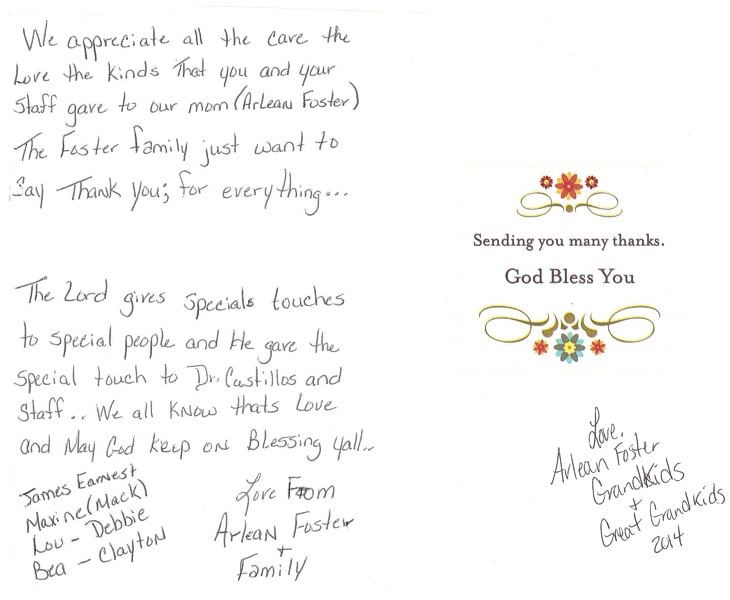 We appreciate all the care the
Love the Kinds That you and your
Staff gave to our mom (Arlean Foster)
The Foster family just want to
Say Thank you; for everything...
The Lord gives Specials touches
to special people and He gave the
special touch to Dr. Castillos and
Staff.. We all Know thats Love
and May God keep on Blessing yall..
James Earnest
Maxine (Mack)
Lou - Debbie
Bea - Clayton
Love From
Arlean Foster
+
Family
Sending you many thanks.
God Bless You
Love,
Arlean Foster
Grandkids
+
Great Grandkids
2014